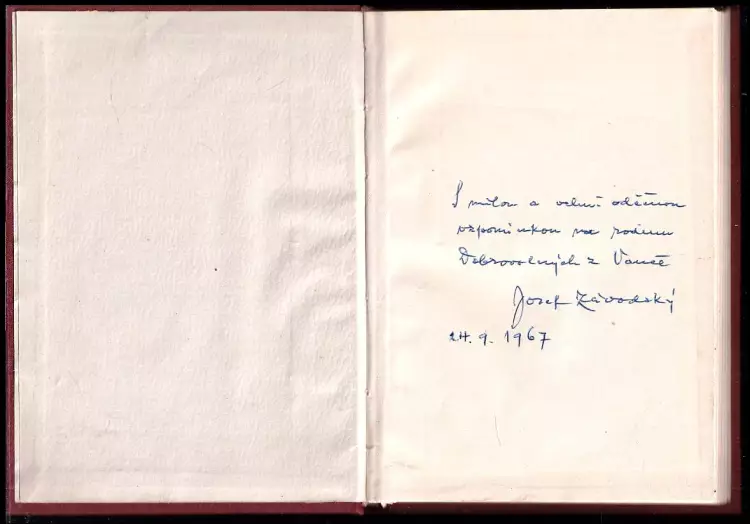 S milou a velmi
vzpomínkou na rodinu
Dobrovolných z
Josef Závodský
24. 9. 1967